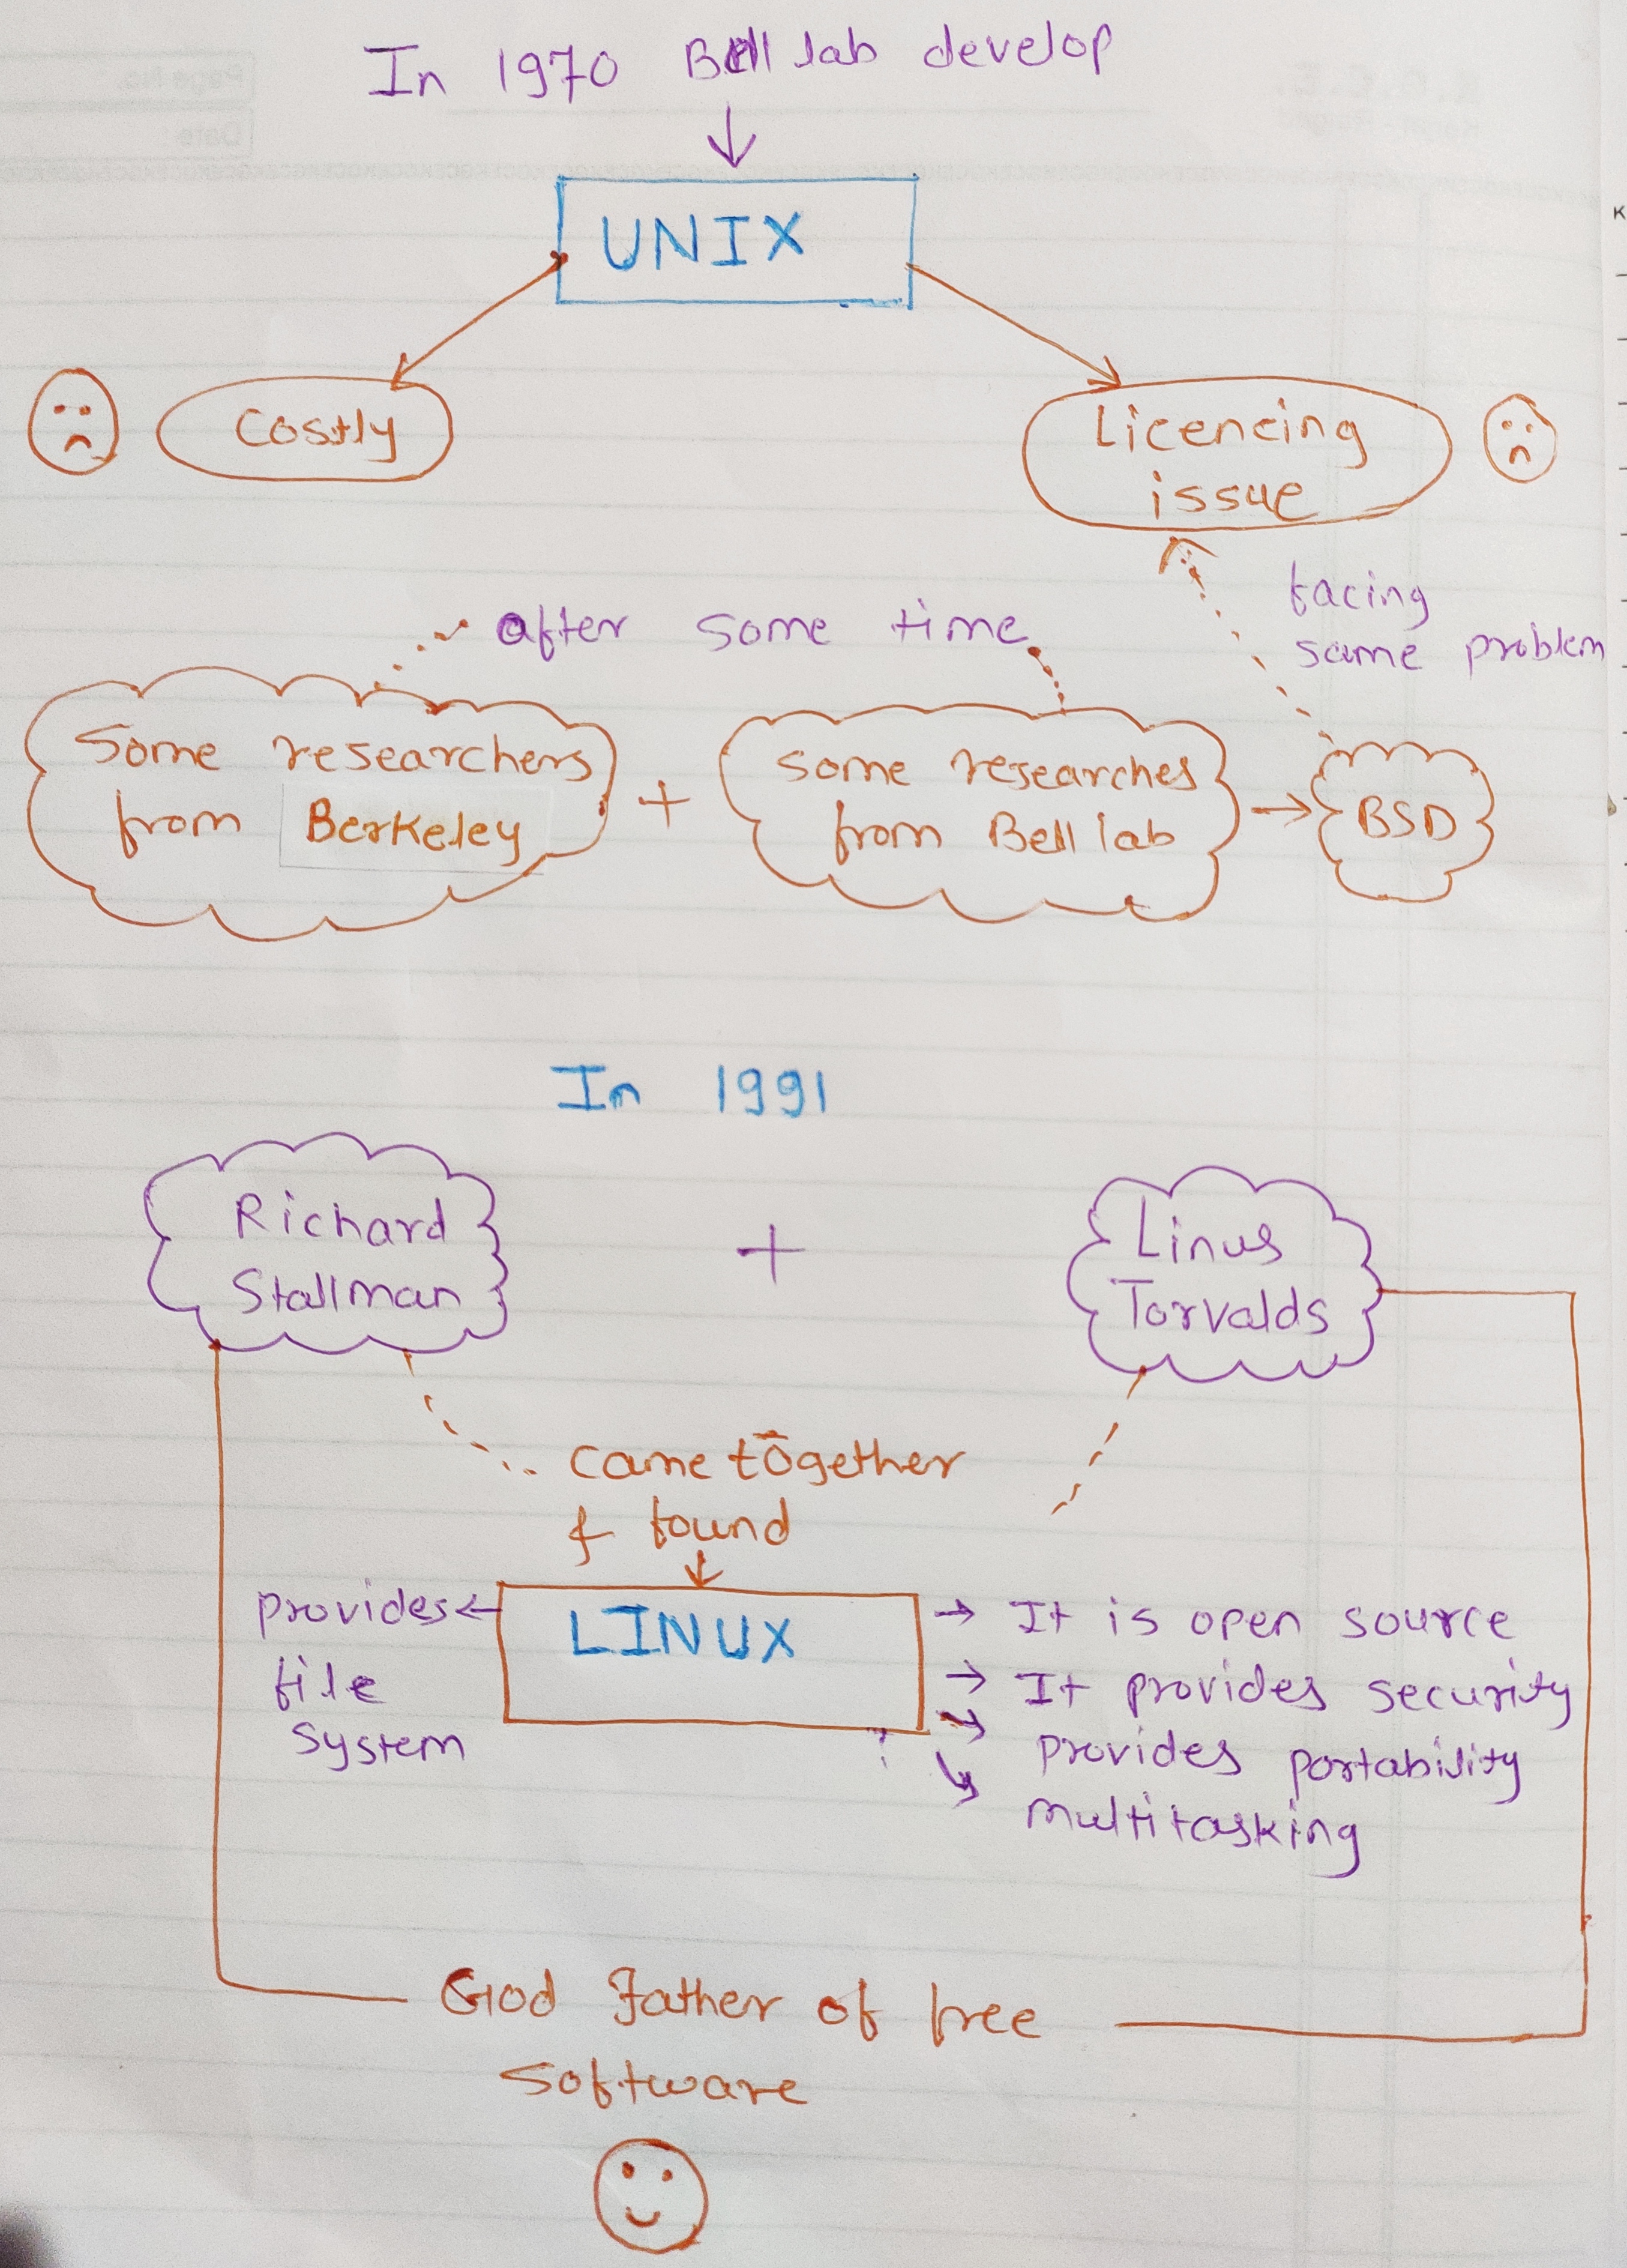 In 1970 Bell lab develop
UNIX
Costly
Licencing
issue
facing
same problem
after some time
Some researchers
from Berkeley
+
some researches
from Bell lab
BSD
In 1991
Richard
Stallman
+
Linus
Torvalds
came together
& found
LINUX
provides
file
system
It is open source
It provides security
provides portability
multitasking
God Father of free
software